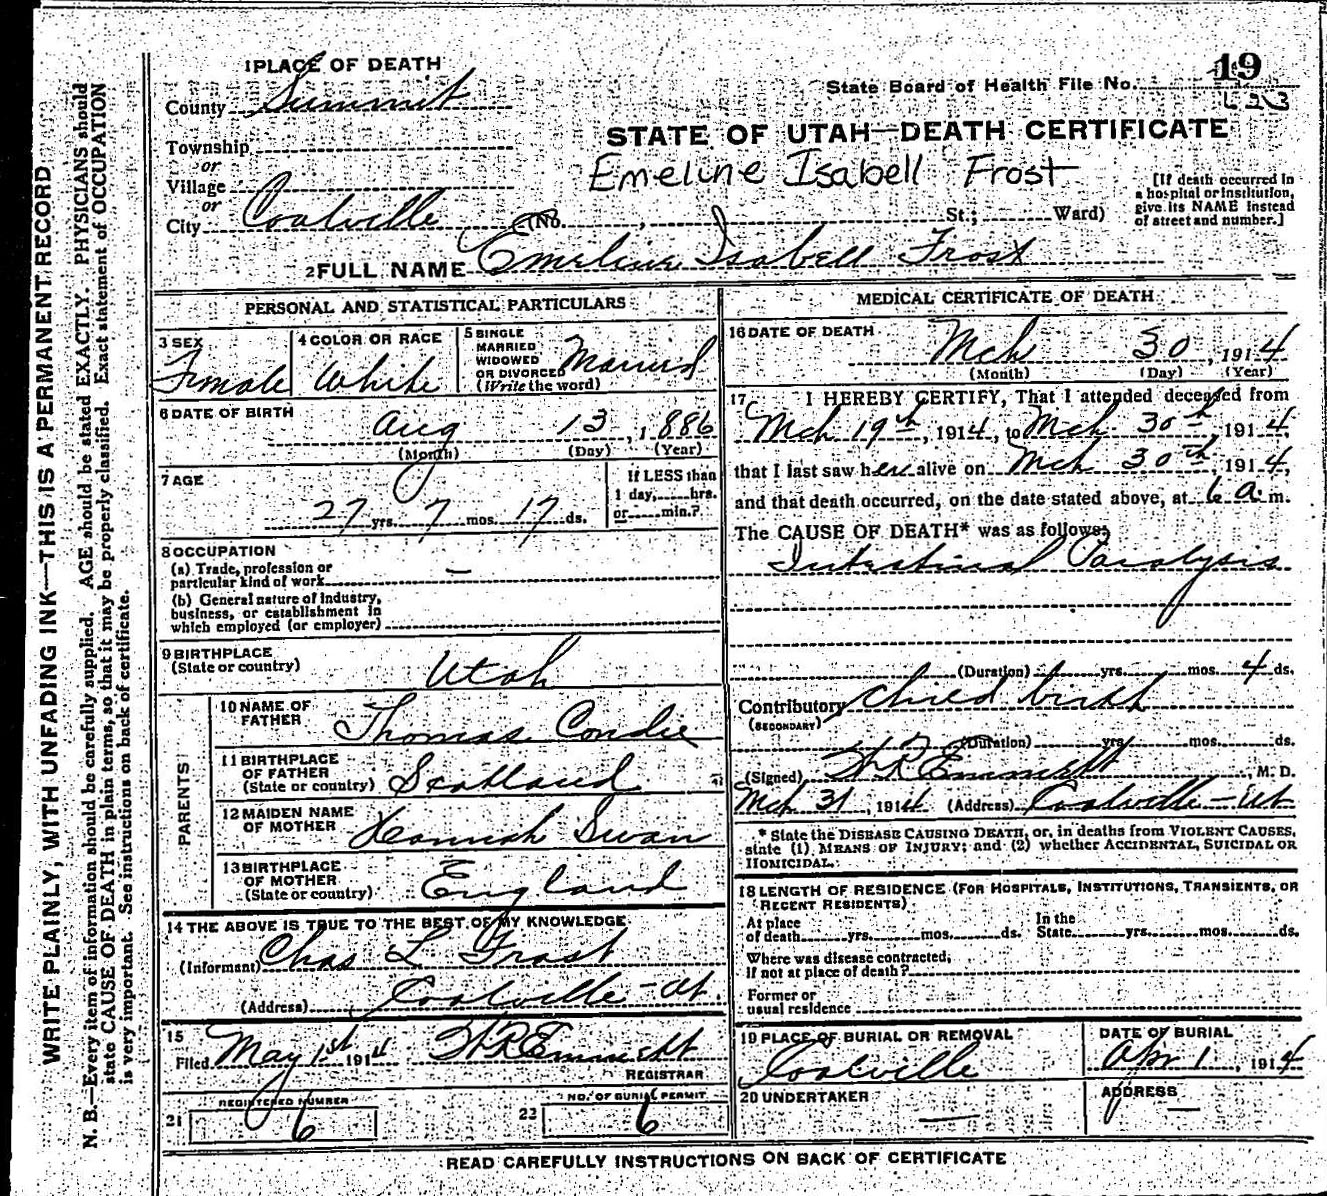 WRITE PLAINLY, WITH UNFADING INK—THIS IS A PERMANENT RECORD
N. B.—Every item of information should be carefully supplied. AGE should be stated EXACTLY. PHYSICIANS should
state CAUSE OF DEATH in plain terms, so that it may be properly classified. Exact statement of OCCUPATION
is very important. See instructions on back of certificate.
1 PLACE OF DEATH
County Summit
Township
or
Village
or
City Coalville (No. , St.; Ward)
19
State Board of Health File No.
623
STATE OF UTAH—DEATH CERTIFICATE
Emeline Isabell Frost
[If death occurred in
a hospital or institution,
give its NAME instead
of street and number.]
2 FULL NAME Emeline Isabell Frost
PERSONAL AND STATISTICAL PARTICULARS
3 SEX
Female
4 COLOR OR RACE
White
5 SINGLE
MARRIED
WIDOWED
OR DIVORCED
(Write the word)
Married
6 DATE OF BIRTH
Aug 13, 1886
(Month) (Day) (Year)
7 AGE
27 yrs. 7 mos. 17 ds.
If LESS than
1 day, hrs.
or min.?
8 OCCUPATION
(a) Trade, profession or
particular kind of work —
(b) General nature of industry,
business, or establishment in
which employed (or employer)
9 BIRTHPLACE
(State or country)
Utah
PARENTS
10 NAME OF
FATHER
Thomas Condie
11 BIRTHPLACE
OF FATHER
(State or country)
Scotland
12 MAIDEN NAME
OF MOTHER
Hannah Swan
13 BIRTHPLACE
OF MOTHER
(State or country)
England
14 THE ABOVE IS TRUE TO THE BEST OF MY KNOWLEDGE
(Informant) Chas L. Frost
(Address) Coalville - Ut.
15
Filed May 1st 1914 H R Emmett
REGISTRAR
21 REGISTERED NUMBER
6
22 NO. OF BURIAL PERMIT
6
MEDICAL CERTIFICATE OF DEATH
16 DATE OF DEATH
Mch 30, 1914
(Month) (Day) (Year)
17 I HEREBY CERTIFY, That I attended deceased from
Mch 19th, 1914, to Mch 30th, 1914,
that I last saw her alive on Mch 30th, 1914,
and that death occurred, on the date stated above, at 6 a. m.
The CAUSE OF DEATH* was as follows:
Intestinal Paralysis
(Duration) yrs. mos. 4 ds.
Contributory child birth
(SECONDARY)
(Duration) yrs. mos. ds.
(Signed) H R Emmett, M. D.
Mch 31, 1914 (Address) Coalville - Ut
* State the DISEASE CAUSING DEATH, or, in deaths from VIOLENT CAUSES,
state (1) MEANS OF INJURY; and (2) whether ACCIDENTAL, SUICIDAL OR
HOMICIDAL.
18 LENGTH OF RESIDENCE (FOR HOSPITALS, INSTITUTIONS, TRANSIENTS, OR
RECENT RESIDENTS)
At place
of death yrs. mos. ds.
In the
State yrs. mos. ds.
Where was disease contracted,
if not at place of death?
Former or
usual residence
19 PLACE OF BURIAL OR REMOVAL
Coalville
DATE OF BURIAL
Apr 1, 1914
20 UNDERTAKER
—
ADDRESS
—
READ CAREFULLY INSTRUCTIONS ON BACK OF CERTIFICATE